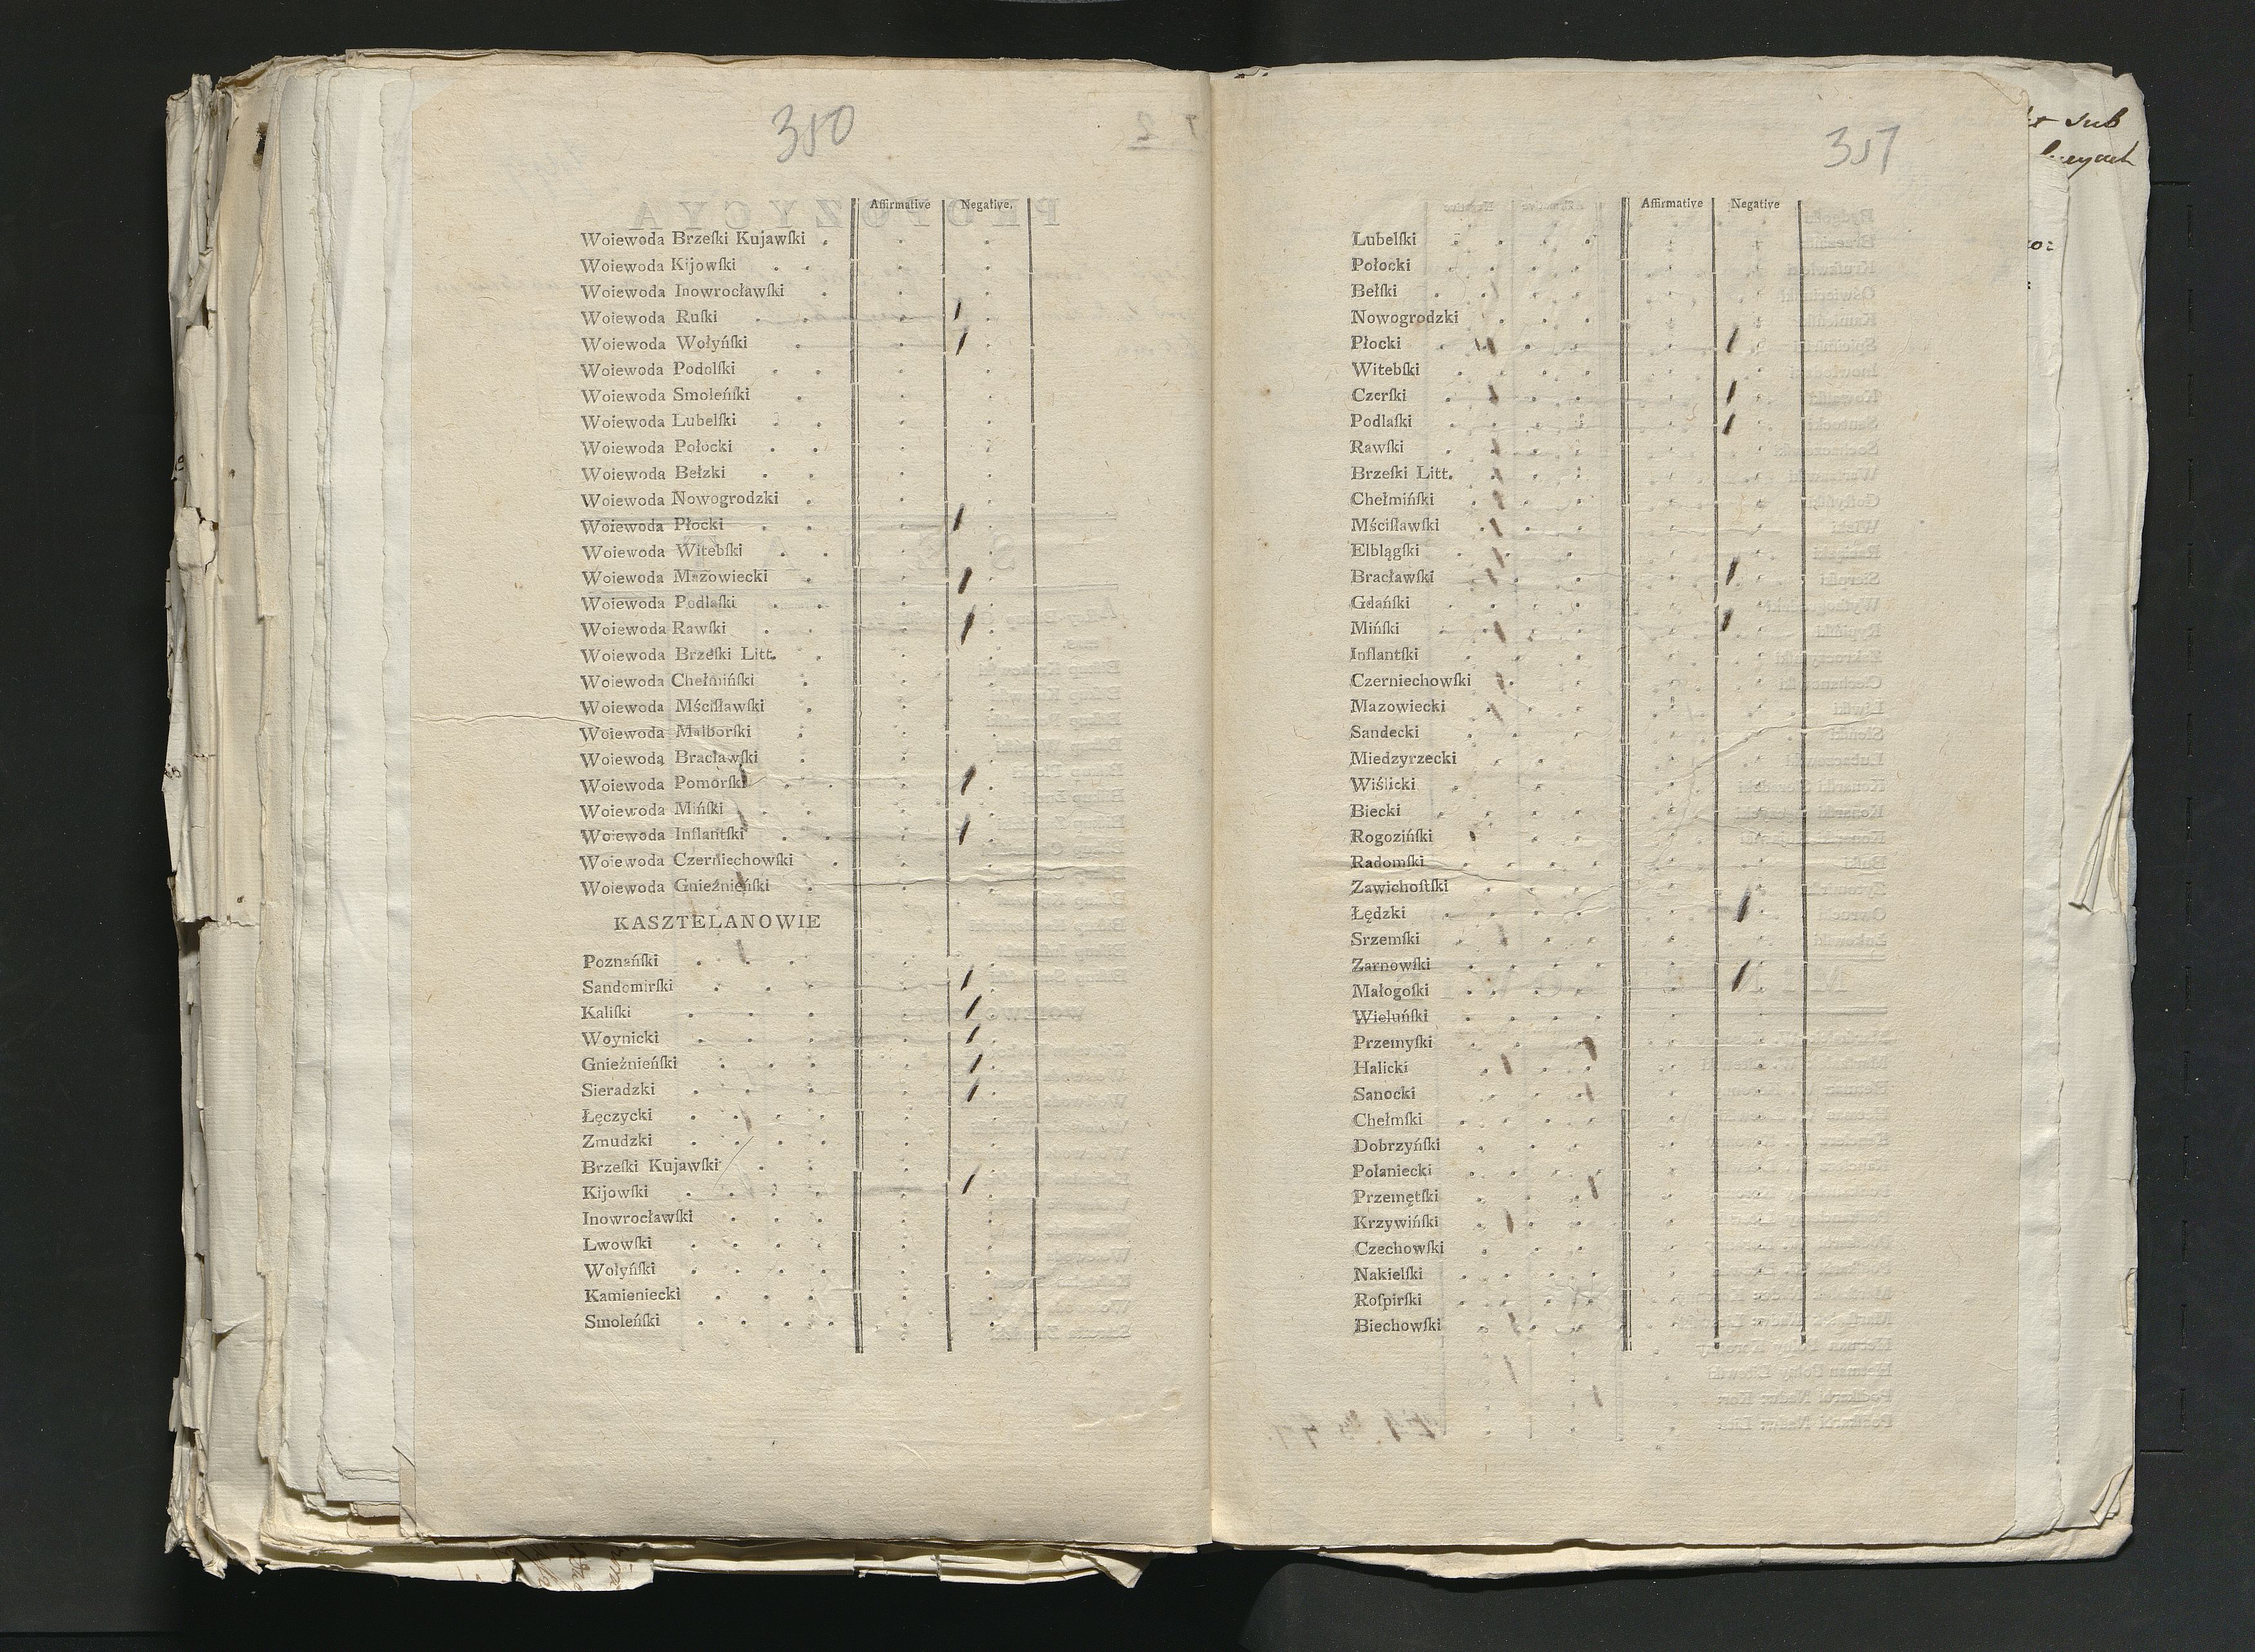 350
Affirmative Negative.
Woiewoda Brzeſki Kujawſki
Woiewoda Kijowſki
Woiewoda Inowrocławſki
Woiewoda Ruſki /
Woiewoda Wołyńſki /
Woiewoda Podolſki
Woiewoda Smoleńſki
Woiewoda Lubelſki
Woiewoda Połocki
Woiewoda Bełzki
Woiewoda Nowogrodzki
Woiewoda Płocki /
Woiewoda Witebſki
Woiewoda Mazowiecki /
Woiewoda Podlaſki
Woiewoda Rawſki /
Woiewoda Brzeſki Litt.
Woiewoda Chełmińſki
Woiewoda Mściſławſki
Woiewoda Malborſki
Woiewoda Bracławſki
Woiewoda Pomorſki /
Woiewoda Mińſki
Woiewoda Inflantſki /
Woiewoda Czerniechowſki
Woiewoda Gnieźnieńſki
KASZTELANOWIE
Poznańſki
Sandomirſki /
Kaliſki /
Woynicki /
Gnieźnieńſki /
Sieradzki /
Łęczycki
Zmudzki
Brzeſki Kujawſki
Kijowſki /
Inowrocławſki
Lwowſki
Wołyńſki
Kamieniecki
Smoleńſki
351
Affirmative Negative
Lubelſki
Połocki
Bełſki
Nowogrodzki
Płocki /
Witebſki
Czerſki /
Podlaſki /
Rawſki
Brzeſki Litt.
Chełmińſki
Mściſławſki
Elblągſki
Bracławſki /
Gdańſki
Mińſki /
Inflantſki
Czerniechowſki
Mazowiecki
Sandecki
Miedzyrzecki
Wiślicki
Biecki
Rogozińſki
Radomſki
Zawichoſtſki
Łędzki /
Srzemſki
Zarnowſki
Małogoſki /
Wieluńſki
Przemyſki
Halicki
Sanocki
Chełmſki
Dobrzyńſki
Połaniecki
Przemętſki
Krzywińſki
Czechowſki
Nakielſki
Roſpirſki
Biechowſki
sub